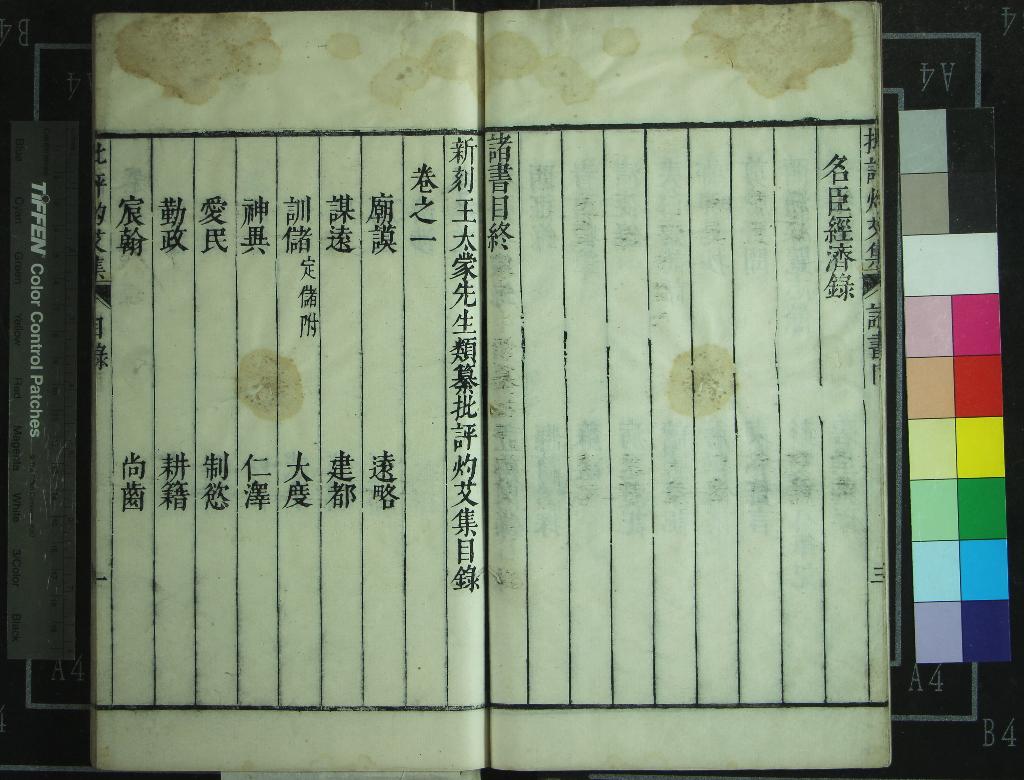 名臣經濟錄
三
諸書目終
新刻王太蒙先生類纂批評灼艾集目錄
卷之一
廟謨 遠略
謀遠 建都
訓儲 定儲附 大度
神異 仁澤
愛民 制慾
勤政 耕籍
宸翰 尚齒
批評灼艾集 目錄 一
TIFFEN Color Control Patches
Blue Cyan Green Yellow Red Magenta White 3/Color Black
A4
A4
A4
A4
B4
B4